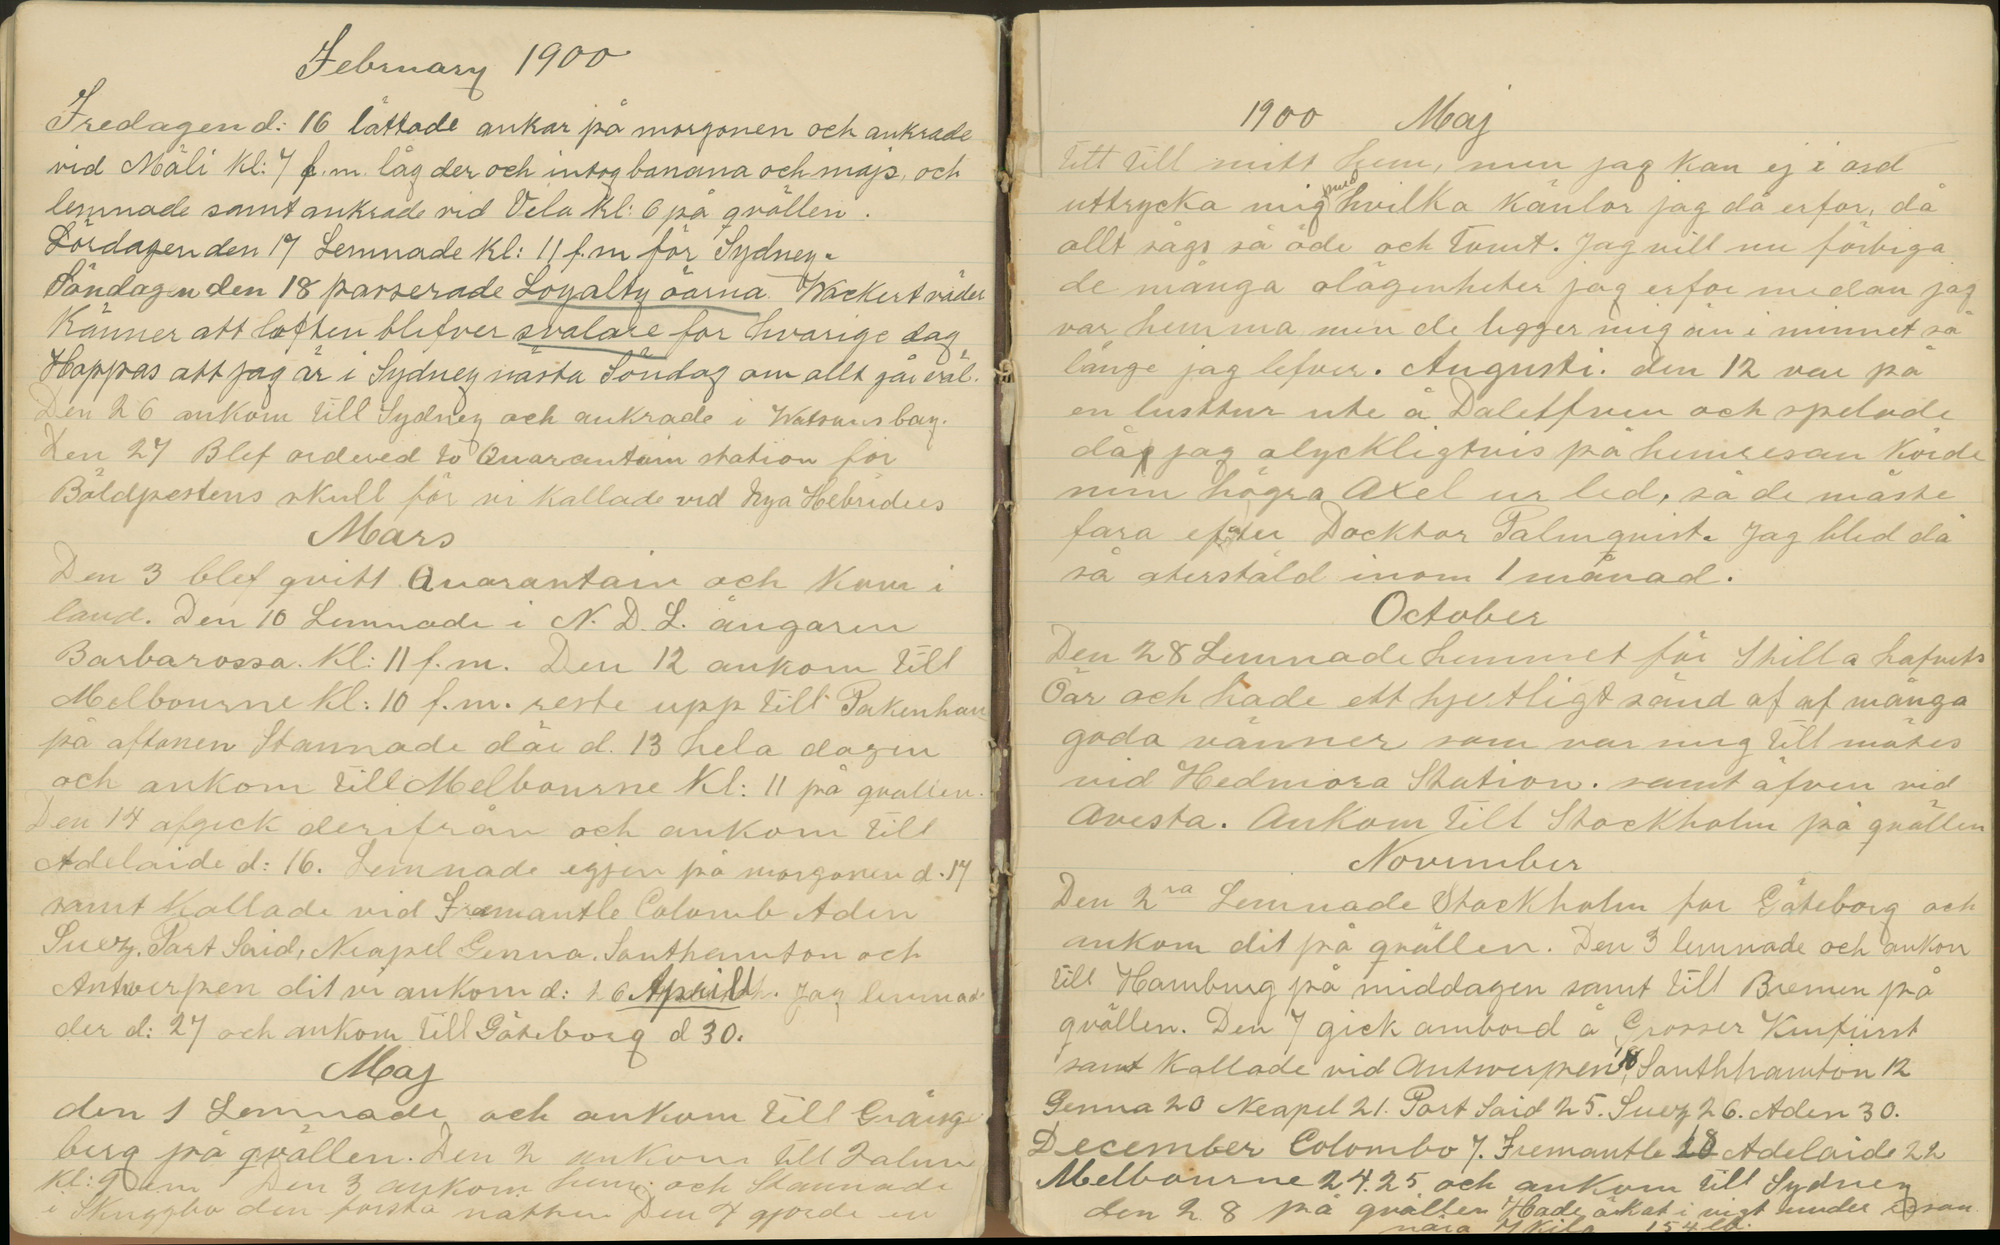 February 1900
Fredagen d: 16 lättade ankar på morgonen och ankrade
vid Mäli kl: 7 f.m. låg der och intog banana och majs, och
lemnade samt ankrade vid Vela kl: 6 på qvällen.
Lördagen den 17 Lemnade kl: 11 f.m för Sydney.
Söndagen den 18 passerade Loyalty öarna. Wackert väder
Känner att loften blifver svalare for hvarige dag
Hoppas att jag är i Sydney nästa Söndag om allt går väl.
Den 26 ankom till Sydney och ankrade i Watsons bay.
Den 27 Blef ordered to Quarantain station för
Böldpestens skull för vi kallade vid Nya Hebridees
Mars
Den 3 blef qvitt Quarantain och kom i
land. Den 10 Lemnade i N. D. L. ångaren
Barbarossa. Kl: 11 f.m. Den 12 ankom till
Melbourne Kl: 10 f.m. reste upp till Pakenham
på aftonen Stannade där d. 13 hela dagen
och ankom till Melbourne Kl: 11 på qvällen.
Den 14 afgick derifrån och ankom till
Adelaide d: 16. Lemnade egjen på morgonen d. 17
samt Kallade vid Fremantle Colomb Aden
Suez. Port Said, Neapel Genna. Southamton och
Antwerpen dit vi ankom d: 26 April. Jag lemnade
der d: 27 och ankom till Göteborg d 30.
Maj
den 1 Lemnade och ankom till Gränges
berg på qvällen. Den 2 ankom till Falun
kl: 9 em Den 3 ankom hem och Stannade
i Skuggbo den första natten Den 4 gjorde en
1900 Maj
titt till mitt hem, men jag kan ej i ord
uttrycka mig med hvilka känlor jag då erfor, då
allt sågs så öde och tomt. Jag vill nu förbiga
de många olägenheter jag erfor medan jag
var hemma men de ligger mig än i minnet så
länge jag lefver. Augusti. den 12 var på
en lusttur ute å Dalelfven och spelade
då jag olyckligtvis på hemresan körde
min högra Axel ur led, så de måste
fara efter Docktor Palmqvist. Jag bled då
så aterstäld inom 1 månad.
October
Den 28 Lemnade hemmet för Stilla hafvets
Öar och hade ett hjertligt sänd af af många
goda vänner som var mig till mötes
vid Hedmora Station. samt äfven vid
Avesta. Ankom till Stockholm på qvällen
November
Den 2ra Lemnade Stockholm for Göteborg och
ankom dit på qvällen. Den 3 lemnade och ankom
till Hamburg på middagen samt till Bremen på
qvällen. Den 7 gick ambord å Grosser Kurfürst
samt kallade vid Antwerpen, Southhamton 12
Genna 20 Neapel 21. Port Said 25. Suez 26. Aden 30.
December Colombo 7. Fremantle 18 Adelaide 22
Melbourne 24. 25 och ankom till Sydney
den 28 på qvällen Hade ökat i vigt under resan
nära 7 Kilo 154 lb.